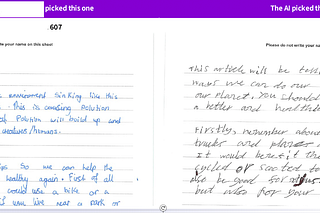 picked this one
The AI picked th
607
te your name on this sheet
Please do not write your na
environment sinking like this
. This is creating polution
Polution will build up and
creatures/humans.
so we can help the
healthy again. First of all
could use a bike or a
you live near a park or
This article will be
ways we can do our
our planet. You should
a better and
Firstly, remember about
trucks and planes
It would benefit the
or
also be good for
but also for your